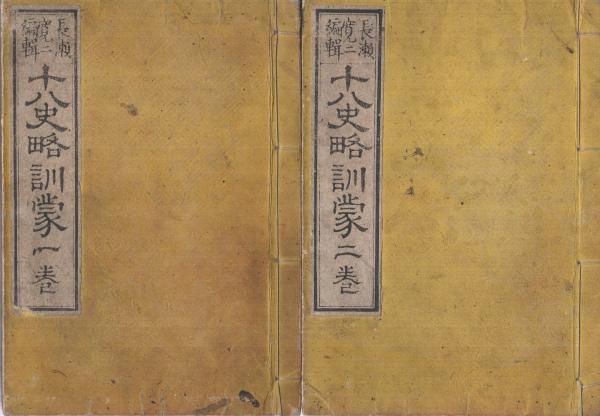 長瀬
寛二
編輯
十八史略訓蒙 一巻
長瀬
寛二
編輯
十八史略訓蒙 二巻